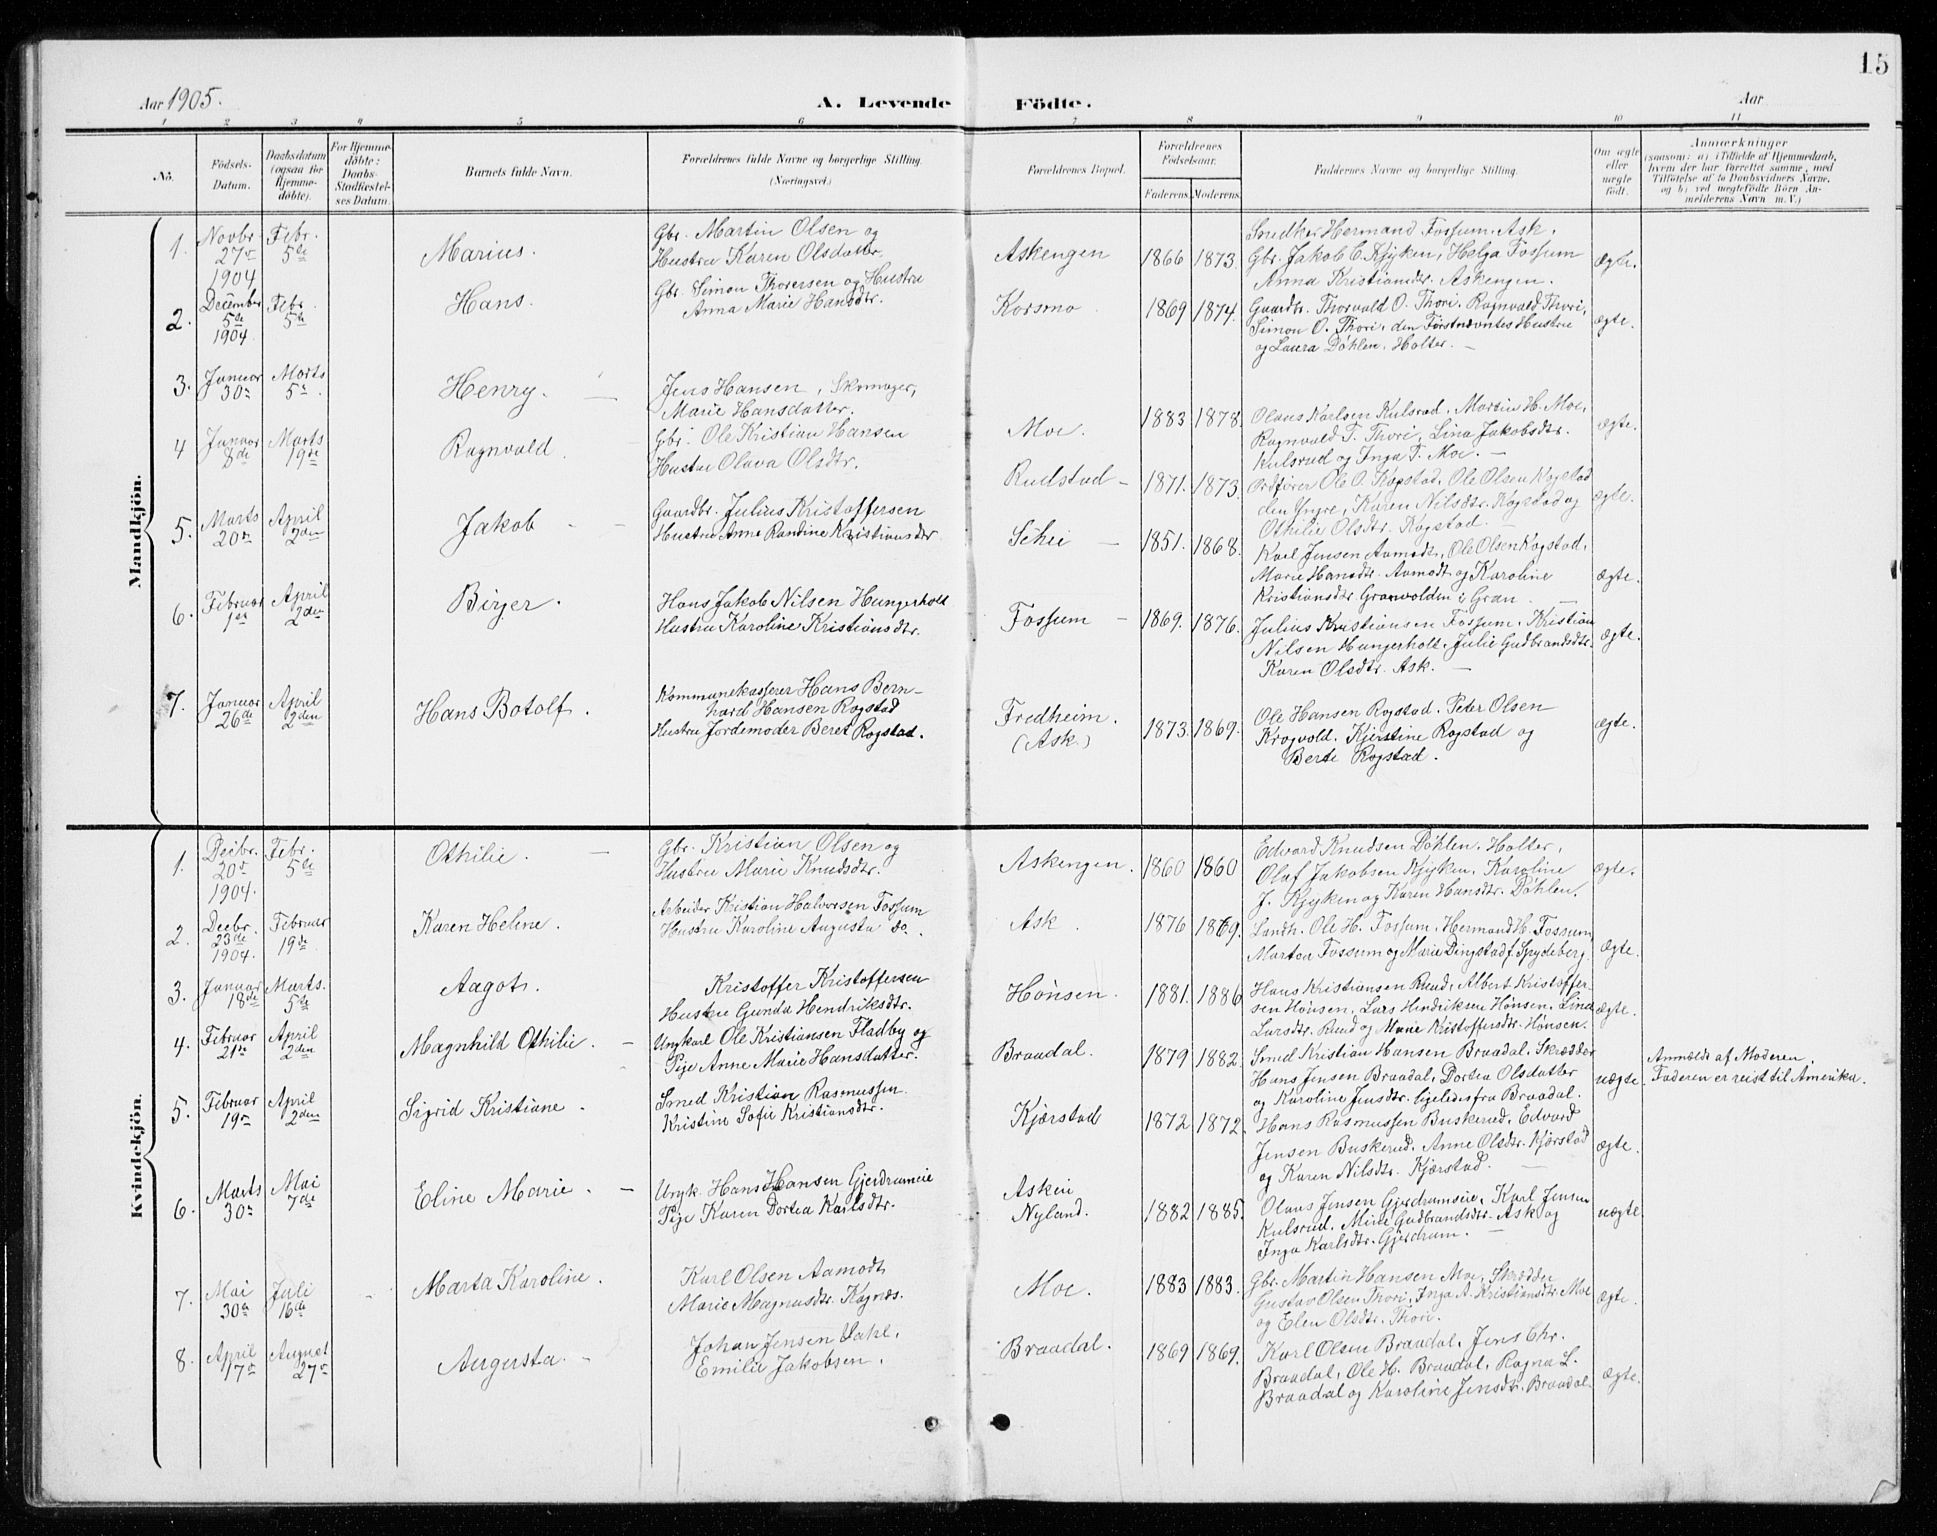 15
Aar 1905.
A. Levende Födte.
Aar
1 2 3 4 5 6 7 8 9 10 11
No.
Födsels-Datum.
Daabsdatum (ogsaa for Hjemme-döbte).
For Hjemme-döbte: Daabs-Stadfæstel-ses Datum.
Barnets fulde Navn.
Forældrenes fulde Navne og borgerlige Stilling. (Næringsvei.)
Forældrenes Bopæl.
Forældrenes Fødselsaar.
Faderens. Moderens.
Faddernes Navne og borgerlige Stilling.
Om ægte eller uægte födt.
Anmærkninger
(saasom: a) i Tilfælde af Hjemmedaab, hvem der har forrettet samme, med Tilföielse af to Daabsvidners Navne, og b) ved uægtefödte Börn An-melderens Navn m. V.)
Mandkjön.
1. Novbr. 27de 1904 Febr. 5te Marius. Gbr. Martin Olsen og Hustru Karen Olsdatter Askengen 1866 1873. Snedker Hermand Fossum. Ask. Gbr. Jakob C. Kjyken, Helga Fossum Anna Kristiansdtr. Askengen. ægte.
2. December 5te 1904. Febr. 5te Hans. Gbr. Simon Thoresen og Hustru Anna Marie Hansdtr. Korsmo 1869 1874. Gaardbr. Thorvald O. Thori. Ragnvald Thori, Simon O. Thori, den Førstnævntes Hustru og Laura Døhlen. Holter. ægte.
3. Januar 30te Marts 5te Henry. Jens Hansen, Skomager, Marie Hansdatter. Moe. 1883 1878. Olaus Karlsen Kulsrud, Martin H. Moe, Ragnvald T. Thori, Lina Jakobsdtr. Kulsrud og Inga T. Moe. ægte.
4 Januar 8de Marts 19de Ragnvald. Gbr. Ole Kristian Hansen Hustru Olava Olsdtr. Rudstad 1871. 1873. Ordfører Ole O. Rogstad, Ole Olsen Rogstad den Yngre, Karen Nilsdtr. Rogstad og Othilie Olsdtr. Rogstad. ægte.
5. Marts 20de April 2den Jakob Gaardbr. Julius Kristoffersen Hustru Anne Randine Kristiansdtr Schei 1851. 1868. Karl Jensen Aamodt, Ole Olsen Rogstad, Marie Hansdtr. Aamodt og Karoline Kristiansdtr. Granvolden i Gran. ægte.
6. Februar 1ste April 2den Birger. Hans Jakob Nilsen Hungerholt Hustru Karoline Kristiansdtr. Fossum 1869. 1876. Julius Kristiansen Fossum. Kristian Nilsen Hungerholt. Julie Gudbrandsdtr. Karen Olsdtr. Ask. ægte.
7. Januar 26de April 2den Hans Botolf. Kommunekasserer Hans Bern-hard Hansen Rogstad Hustru Jordemoder Beret Rogstad. Fredheim. (Ask.) 1873. 1869. Ole Hansen Rogstad. Peter Olsen Krogvold. Kjerstine Rogstad og Berte Rogstad. ægte.
Kvindekjön.
1. Decbr. 20de 1904. Febr. 5te Othilie. Gbr. Kristian Olsen og Hustru Marie Knudsdtr. Askengen. 1860 1860 Edvard Knudsen Døhlen. Holter, Olaf Jakobsen Kjyken. Karoline J. Kjyken og Karen Hansdtr. Døhlen. ægte.
2. Decbr. 23de 1904. Februar 19de Karen Helene. Arbeider Kristian Halvorsen Fossum Hustru Karoline Augusta do. Ask. 1876 1869. Landh. Ole H. Fossum, Hermand H. Fossum, Martea Fossum og Marie Dingstad f. Spydeberg. ægte.
3. Januar 18de Marts. 5te Aagot. Kristoffer Kristoffersen Hustru Gunda Hendriksdtr. Hønsen. 1881. 1886 Hans Kristiansen Ruud, Albert Kristoffer-sen Hønsen, Lars Hindriksen Hønsen. Lina Larsdtr. Ruud og Marie Kristoffersdtr. Hønsen. ægte.
4. Februar 21de April 2den Magnhild Othilie. Ungkarl Ole Kristiansen Fladby og Pige Anne Marie Hansdatter. Braadal. 1879 1882. Smed Kristian Hansen Braadal, Skrædder Hans Jensen Braadal, Dortea Olsdatter og Karoline Jensdtr. ligeledes fra Braadal. uægte. Anmeldt af Moderen. Faderen er reist til Amerika.
5. Februar 19de April 2den Sigrid Kristiane. Smed Kristian Rasmussen Kristine Sofie Kristiansdtr. Kjærstad 1872 1872. Hans Rasmussen Buskerud, Edvard Jensen Buskerud. Anne Olsdtr. Kjærstad og Karen Nilsdtr. Kjærstad. ægte.
6. Marts 30te Mai 7de Eline Marie. Ungk. Hans Hansen Gjerdrumeie Pige Karen Dortea Karlsdtr. Askeie Nyland. 1882 1885. Olaus Jensen Gjerdrumseie, Karl Jensen Kulsrud. Mina Gudbrandsdtr. Ask og Inga Karlsdtr. Gjerdrum. uægte.
7. Mai 30te Juli 16de Marta Karoline. Karl Olsen Aamodt Marie Magnusdtr. Ragnæs. Moe. 1883 1883. Gbr. Martin Hansen Moe, Skrædder Gustav Olsen Thori, Inga A. Kristiansdtr. Moe og Elen Olsdtr. Thori. ægte.
8. April 17de August 27de Augusta. Johan Jensen Dahl, Emilie Jakobsen. Braadal. 1869 1869. Karl Olsen Braadal, Jens Chr. Braadal, Ole H. Braadal, Ragna L. Braadal og Karoline Jensdtr. Braadal. ægte.